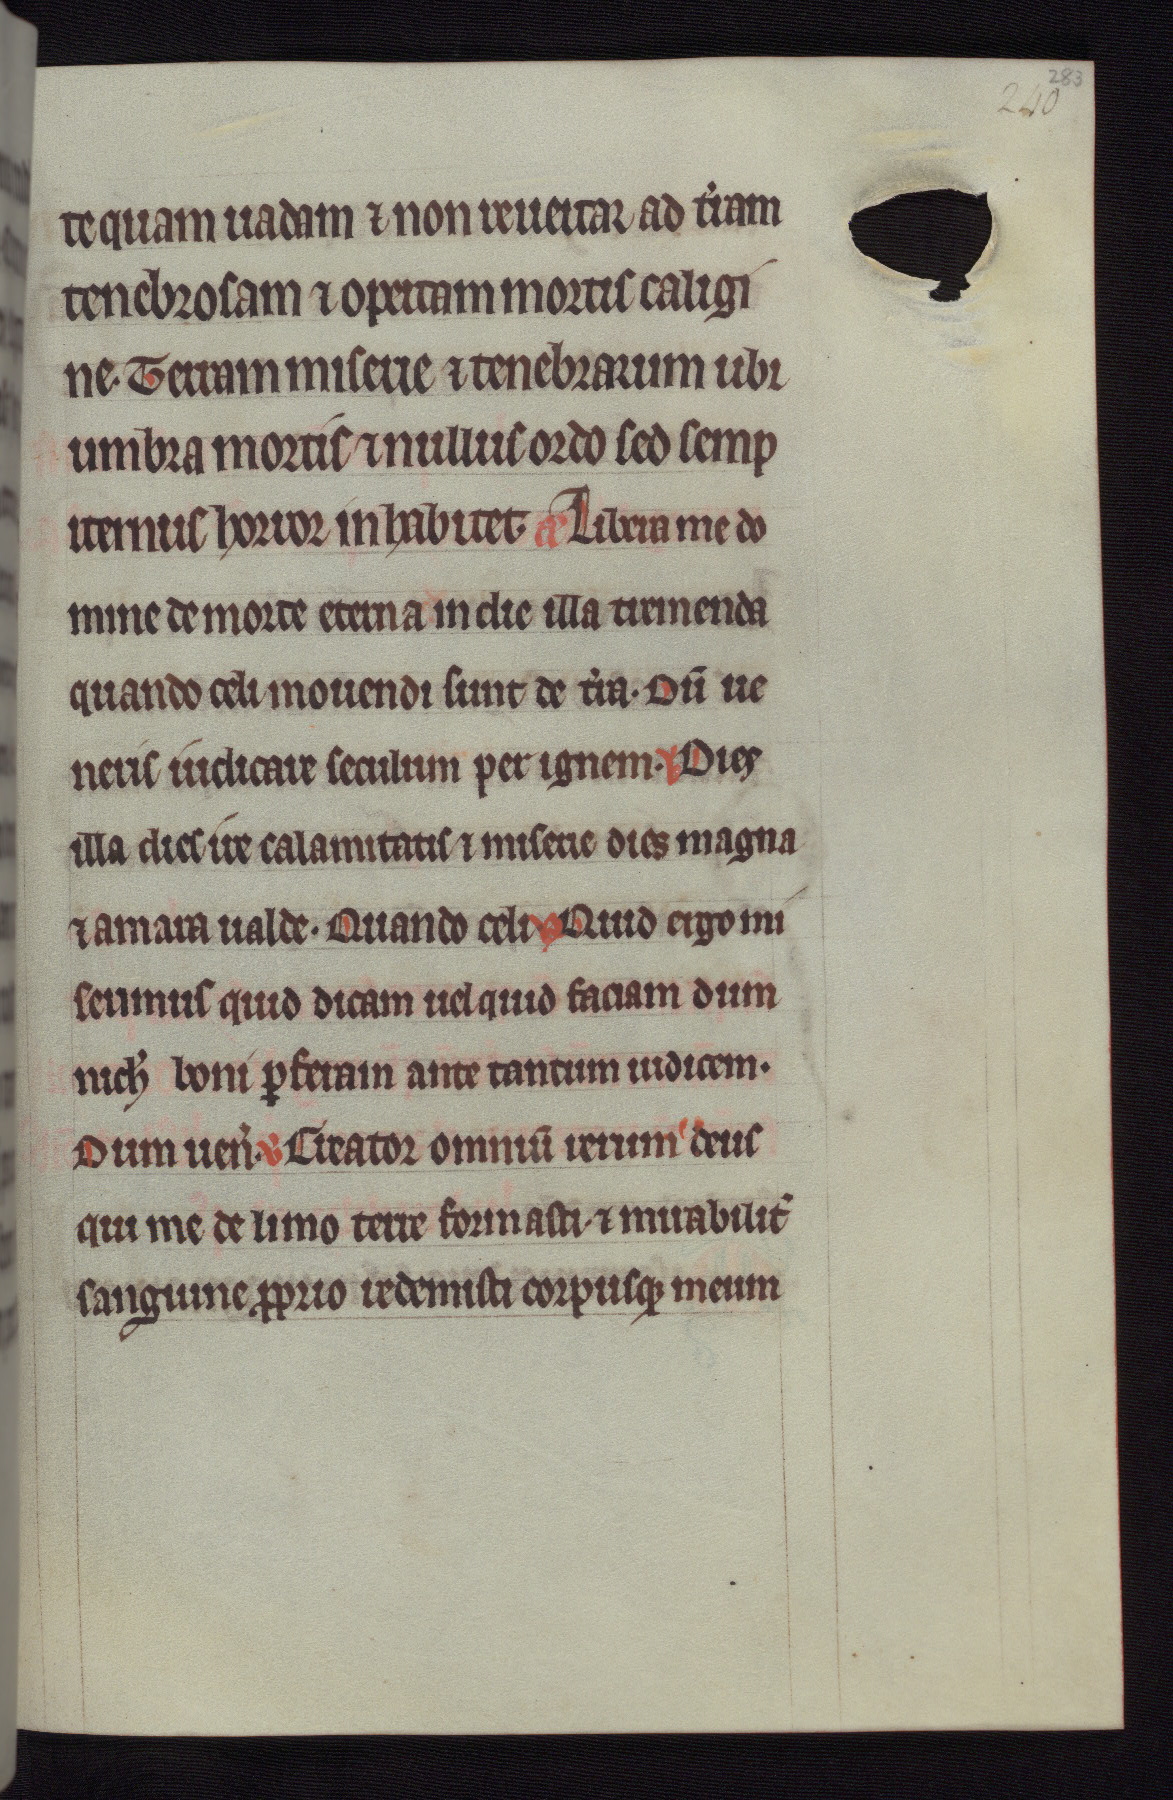 283
240
te quam uadam ⁊ non reuertar ad t̉ram
tenebrosam ⁊ opertam mortis caligi
ne. Terram miserie ⁊ tenebrarum ubi
umbra mortis ⁊ nullus ordo sed semp
iternus horror inhabitet. Libera me do
mine de morte eterna in die illa tremenda
quando celi mouendi sunt de t̉ra. Dū ue
neris iudicare seculum per ignem. ℣ Dies
illa dies ire calamitatis ⁊ miserie dies magna
⁊ amara ualde. Quando celi ℣ Quid ergo mi
serrimus quid dicam uel quid faciam dum
nich̉ boni ꝑferam ante tantum iudicem.
Dum uen̉. ℣ Creator omniū rerum deus
qui me de limo terre formasti ⁊ mirabilit̉
sanguine ꝓprio redemisti corpusqꝫ meum